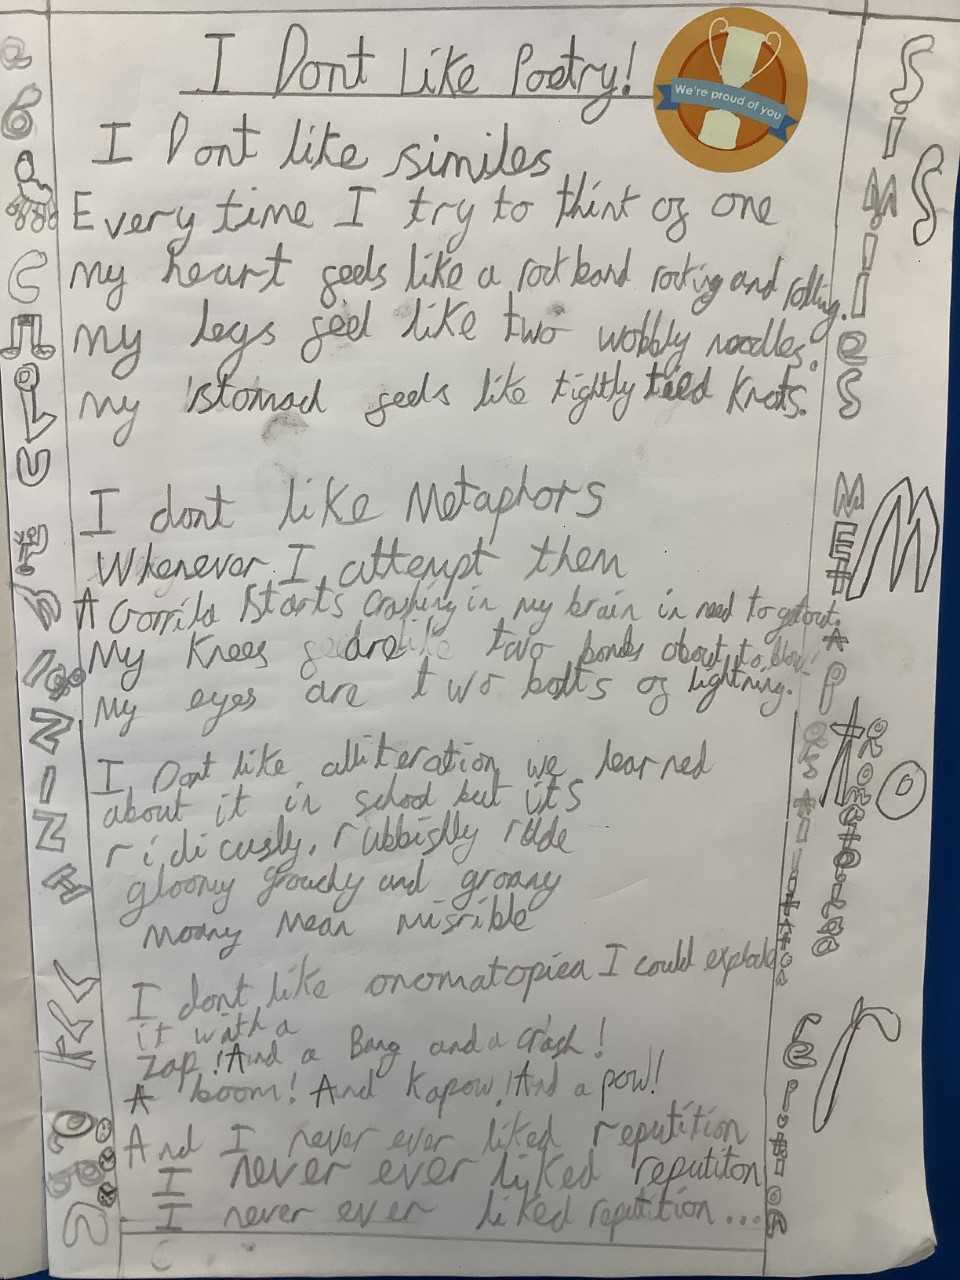 I Dont Like Poetry!
We're proud of you
I Dont like similes
Every time I try to think of one
my heart feels like a rock band rocking and rolling.
my legs feel like two wobbly noodles.
my stomach feels like tightly tied knots.
I dont like Metaphors
Whenever I attempt them
A Gorrila starts crashing in my brain in need to get out.
My knees are like two bombs about to blow!
My eyes are two bolts of lightning.
I Dont like alliteration we learned
about it in school but its
ridicusly, rubbishly rude
gloomy grouchy and groany
moany mean misrible
I dont like onomatopiea I could explode
it with a
Zap! And a Bang and a crash!
A boom! And kapow! And a pow!
And I never ever liked reputition
I never ever liked reputiton
I never ever liked reputition...
SIMIles
S
MEtAP
M